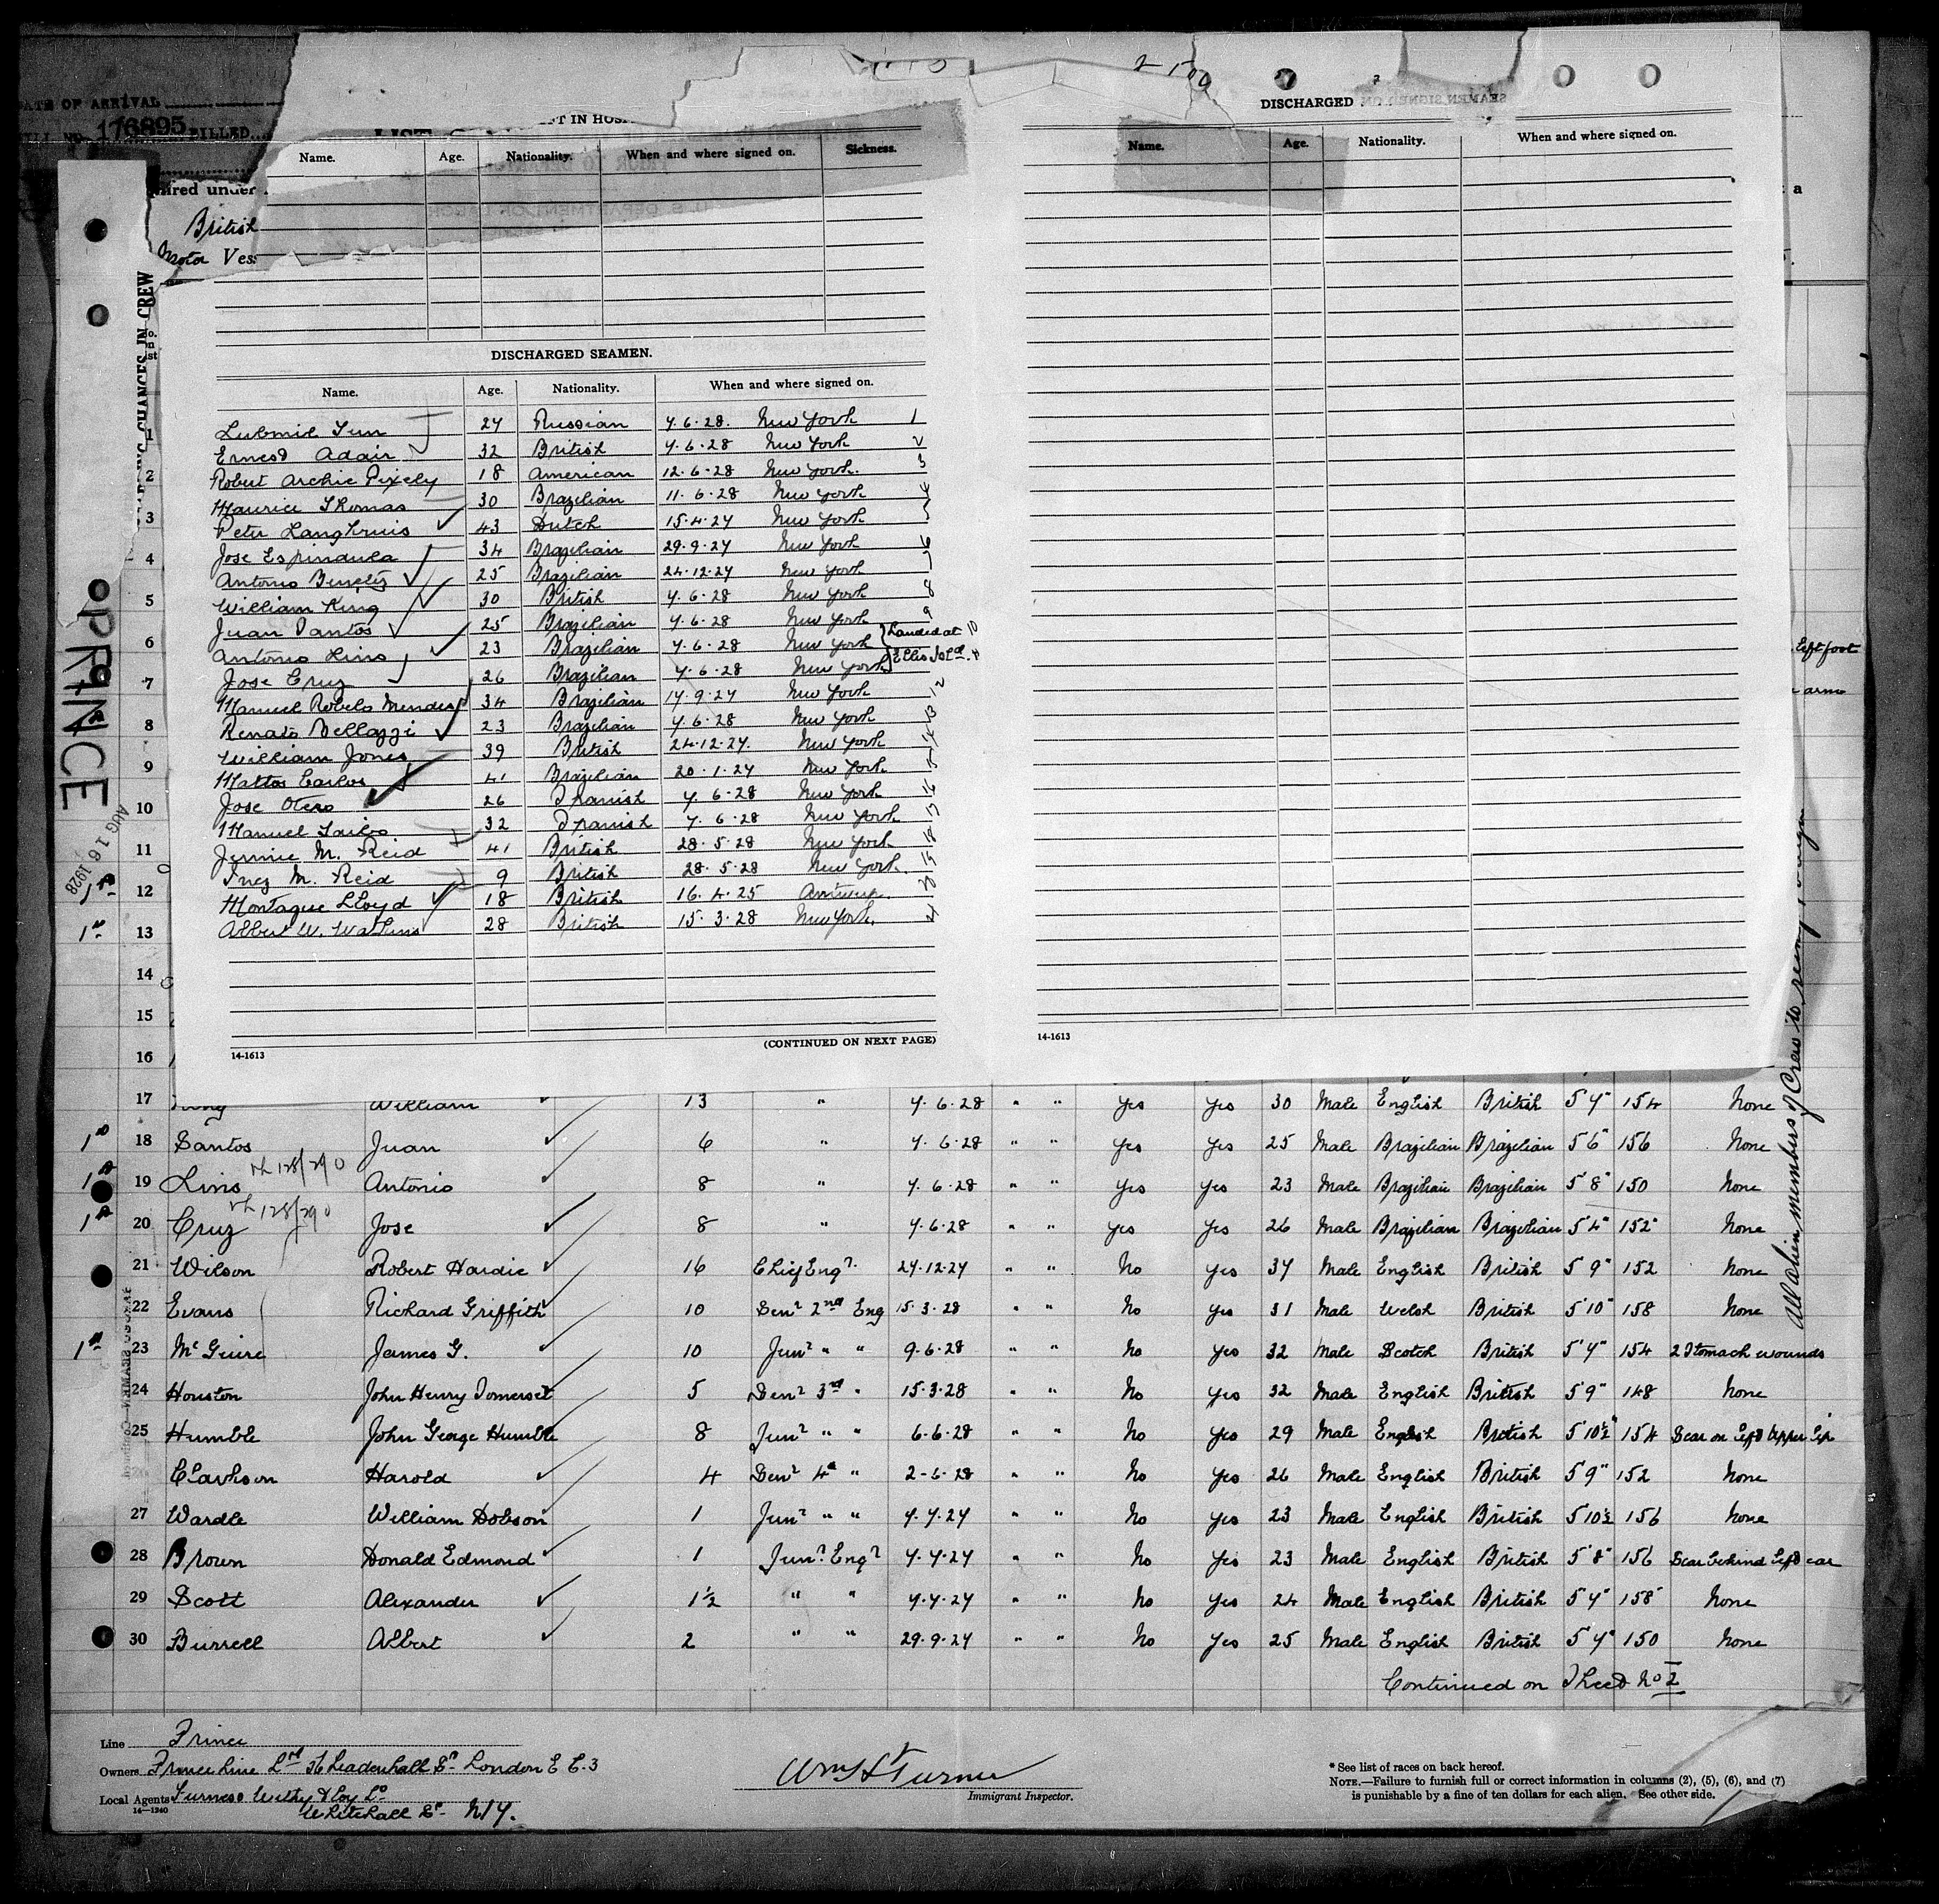 DATE OF ARRIVAL
176895 BILLED
British
Motor Ves
Name. Age. Nationality. When and where signed on. Sickness.
DISCHARGED
Name. Age. Nationality. When and where signed on.
DISCHARGED SEAMEN.
Name. Age. Nationality. When and where signed on.
24 Russian 7.6.28. New York 1
Ernest Adair 32 British 7.6.28 New York 2
Robert Archie Pixely 18 American 12.6.28 New York. 3
Maurice Thomas 30 Brazilian 11.6.28 New York 4
Peter 43 Dutch 15.4.27 New York
Jose Espindula 34 Brazilian 29.9.27 New York 6
Antonio 25 Brazilian 24.12.27 New York
William King 30 British 7.6.28 New York 8
Juan Santos 25 Brazilian 7.6.28 New York 9
Antonio Lins 23 Brazilian 7.6.28 New York Landed at 10
Jose Cruz 26 Brazilian 7.6.28 New York Ellis Isld.
Manuel Robelo Mendes 34 Brazilian 17.9.27 New York 12
Renato Bellazzi 23 Brazilian 7.6.28 New York 13
William Jones 39 British 24.12.27. New York 14
Mattos Carlos 41 Brazilian 20.1.27 New York
Jose Otero 26 Spanish 7.6.28 New York 16
Manuel 32 Spanish 7.6.28 New York 17
Jennie M. Reid 41 British 28.5.28 New York 18
Inez M. Reid 9 British 28.5.28 New York. 19
Montague Lloyd 18 British 16.4.25 Antwerp. 20
Albert W. Watkins 28 British 15.3.28 New York.
14-1613 (CONTINUED ON NEXT PAGE)
14-1613
CHANGES IN CREW
PRINCE
AUG 16 1928
1
2
3
4
5
6
7
8
9
10
11
12
13
14
15
16
left foot
arm
All alien members of Crew is
17 King William 13 " 7.6.28 " " Yes Yes 30 Male English British 5'7" 154 None
18 Santos Juan 6 " 7.6.28 " " Yes Yes 25 Male Brazilian Brazilian 5'6" 156 None
19 Lins Antonio 8 " 7.6.28 " " Yes Yes 23 Male Brazilian Brazilian 5'8" 150 None
20 Cruz Jose 8 " 7.6.28 " " Yes Yes 26 Male Brazilian Brazilian 5'4" 152 None
21 Wilson Robert Hardie 16 Chief Engr. 27.12.27 " " No Yes 37 Male English British 5'9" 152 None
22 Evans Richard Griffith 10 Senr 2nd Eng 15.3.28 " " No Yes 31 Male Welsh British 5'10" 158 None
23 McGuire James G. 10 Junr " " 9.6.28 " " No Yes 32 Male Scotch British 5'7" 154 2 Stomach wounds
24 Houston John Henry Somerset 5 Senr 3rd " 15.3.28 " " No Yes 32 Male English British 5'9" 148 None
25 Humble John George Humble 8 Junr " " 6-6-28 " " No Yes 29 Male English British 5'10½" 154 Scar on left upper lip
Clarkson Harold 4 Senr 4th " 2-6-28 " " No Yes 26 Male English British 5'9" 152 None
27 Wardle William Dobson 1 Junr " " 7.7.27 " " No Yes 23 Male English British 5'10½ 156 None
28 Brown Donald Edmond 1 Junr. Engr 7.7.27 " " No Yes 23 Male English British 5'8" 156 Scar behind left ear
29 Scott Alexander 1½ " " 7.7.27 " " No Yes 24 Male English British 5'7" 158 None
30 Burrell Albert 2 " " 29.9.27 " " No Yes 25 Male English British 5'7" 150 None
Continued on Sheet No 2
Line Prince
Owners Prince Line Ltd Leadenhall St. London E C.3
Local Agents Furness Withy & Coy Ld
14-1240 Whitehall St. N/Y.
Wm S Turner
Immigrant Inspector.
* See list of races on back hereof.
NOTE.—Failure to furnish full or correct information in columns (2), (5), (6), and (7)
is punishable by a fine of ten dollars for each alien. See other side.